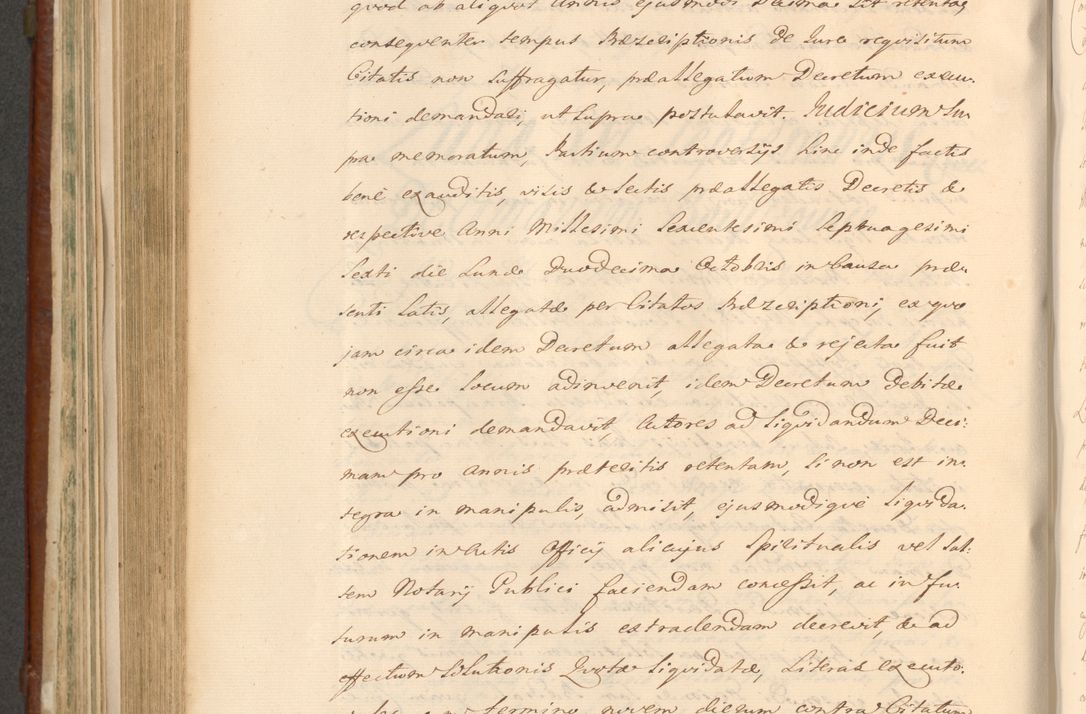 quod ab aliquot Annis ejusmodi Decima sit retenta,
consequenter tempus Præscriptionis de Jure requisitum
Citatis non suffragatur, præallegatum Decretum execu-
tioni demandari, ut supra postulavit. Judicium su-
pra memoratum, Partium controversijs hinc inde factis
benè exauditis, visis & lectis præallegatis Decretis &
respective Anni Millesimi Sexcentesimi Septuagesimi
Sexti die Lunæ Duodecima Octobris in Causa præ-
senti latis, allegatæ per Citatos Præscriptioni, ex quo
jam circa idem Decretum allegata & rejecta fuit
non esse locum adinvenit, idem Decretum debitæ
executioni demandavit, Actores ad liqvidandum Deci:
mam pro Annis præteritis retentam, si non est in-
tegra in manipulis, admisit, ejusmodiqve liqvida-
tionem in Actis Officij alicujus Spiritualis vel sal:
tem Notarij Publici faciendam concessit, ac in fu-
turum in manipulis extradendam decrevit, & ad
effectum solutionis Quotæ liqvidatæ, Literas executo-
termino novem dierum contra Citatum